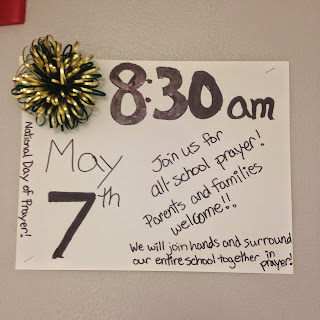 8:30 am
National Day of Prayer!
May
7th
Join us for
all-school prayer!
Parents and families
welcome!!
We will join hands and surround
our entire school together in
prayer!